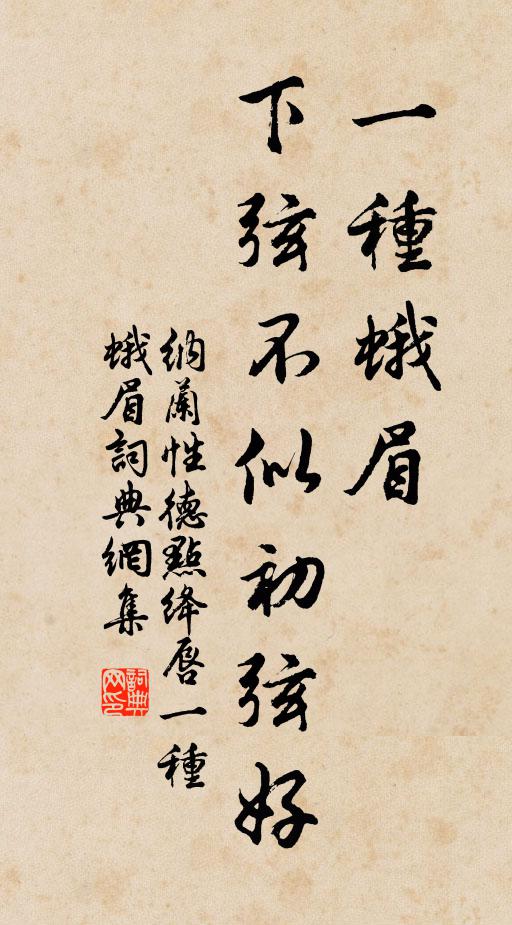 一種蛾眉
下弦不似初弦好
納蘭性德點絳唇一種
蛾眉詞典網集
詞典网印